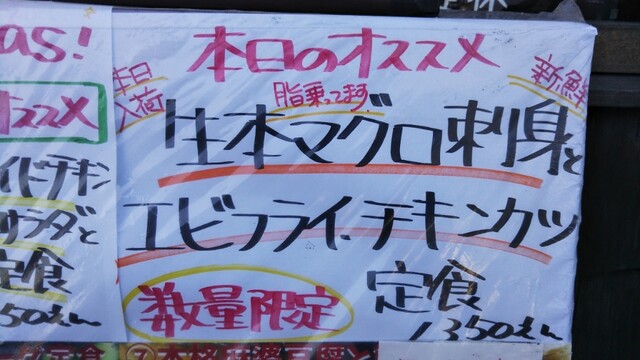 本日のオススメ
本日入荷
脂乗ってます
新鮮
生本マグロ刺身と
エビフライ・チキンカツ
数量限定
定食
1350えん
as!
オススメ
イドチキン
サラダと
定食
50えん